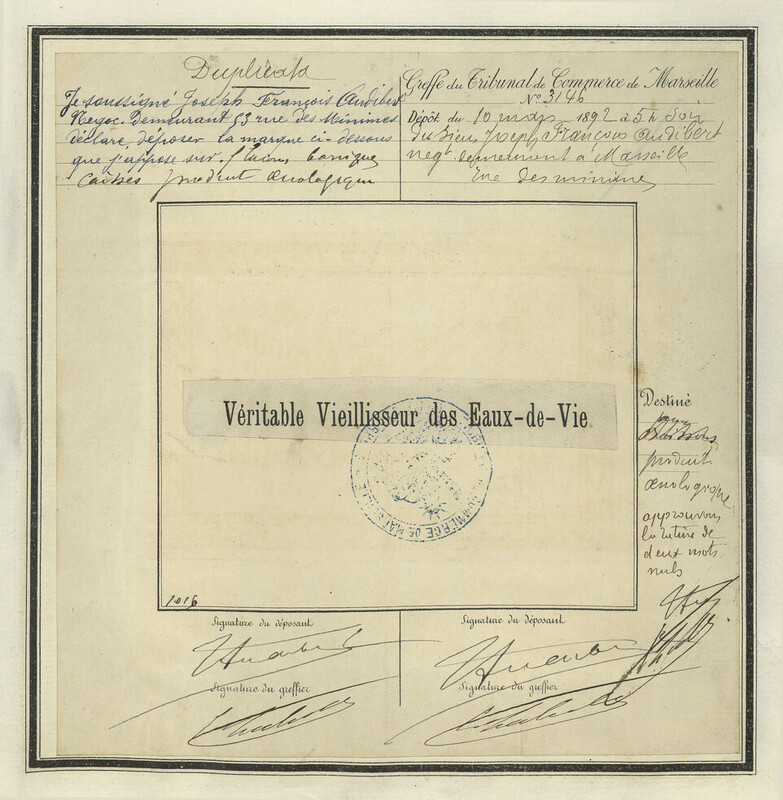 Duplicata
Je soussigné Joseph François Audibert
Negoc. Demeurant 53 rue des Minimes
declare déposer la marque ci-dessous
que j'appose sur flacons bonique
caisses produit œnologique
Greffe du Tribunal de Commerce de Marseille
N° 3146
Dépôt du 10 mars 1892 à 5 h Soir
du Sieur Joseph François Audibert
negt demeurant à Marseille
rue des minimes
Véritable Vieillisseur des Eaux-de-Vie
COMMERCE DE MARSEILLE
Destiné
produit
œnologique
approuvons
la rature de
deux mots
nuls
1016
Signature du déposant
Signature du déposant
Signature du greffier
Signature du greffier